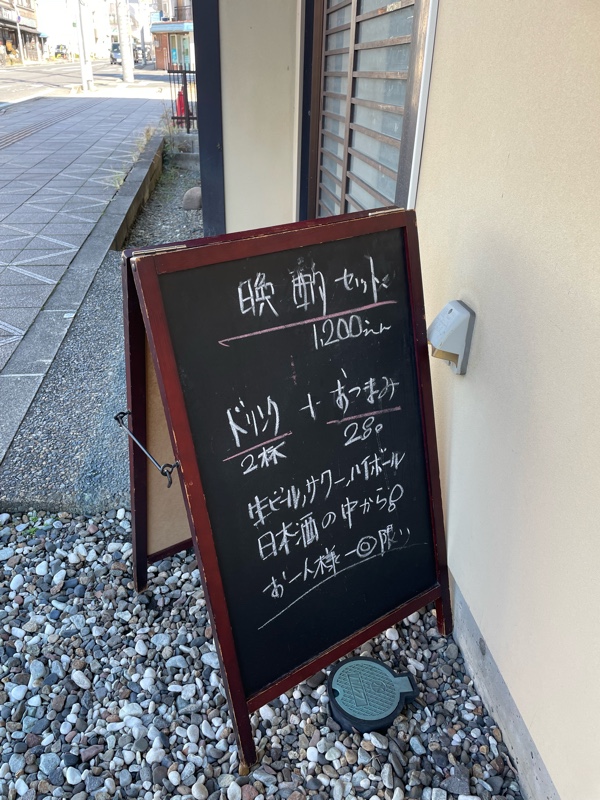 晩酌セット
1,200えん
ドリンク + おつまみ
2杯 2品
生ビール,サワー,ハイボール
日本酒の中から
お一人様一回限り